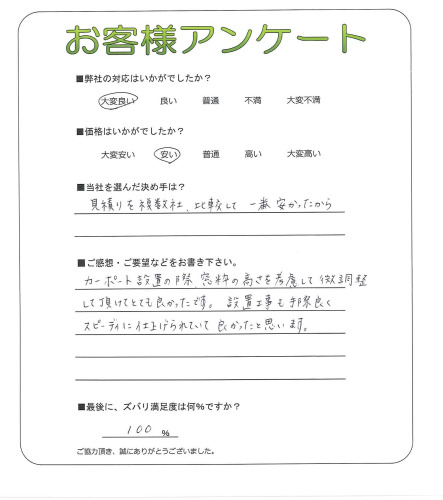 お客様アンケート
■弊社の対応はいかがでしたか？
大変良い 良い 普通 不満 大変不満
■価格はいかがでしたか？
大変安い 安い 普通 高い 大変高い
■当社を選んだ決め手は？
見積りを複数社、比較して 一番 安かったから
■ご感想・ご要望などをお書き下さい。
カーポート設置の際 窓枠の高さを考慮して微調整
して頂けてとても良かったです。 設置工事も手際良く
スピーディに仕上げられていて 良かったと思います。
■最後に、ズバリ満足度は何%ですか？
100 %
ご協力頂き、誠にありがとうございました。